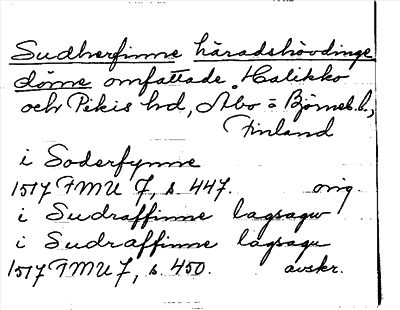 Sudherfinne häradshövdinge
döme omfattade Halikko
och Pikis hd, Åbo o Björneb. l.,
Finland
i Soderfynne
1517 FMU 7, s. 447. orig
i Sudraffinne lagsagw
i Sudraffinne lagsagu
1517 FMU 7, s. 450. avskr.